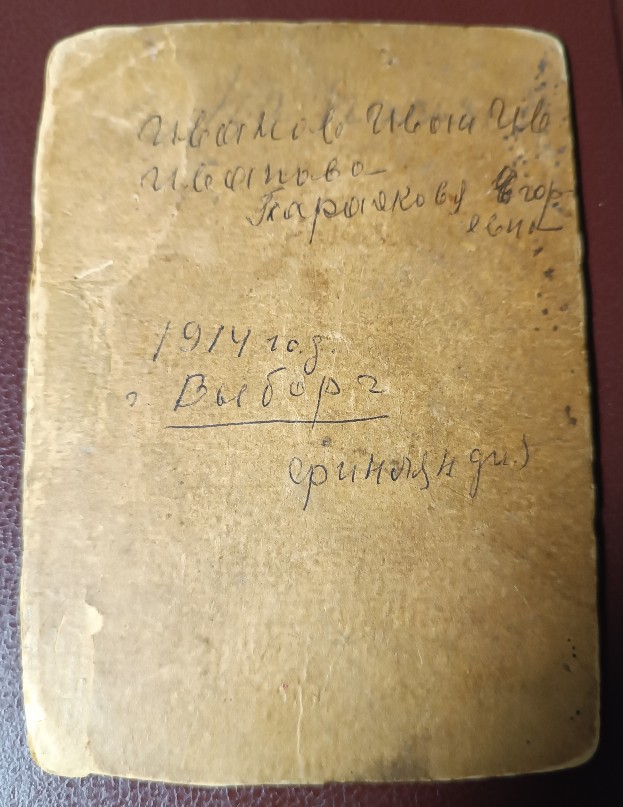 Иванов Иван Ив
Иванова
Парасковя Егор
евна
1914 год.
г. Выборг
Финлянди)